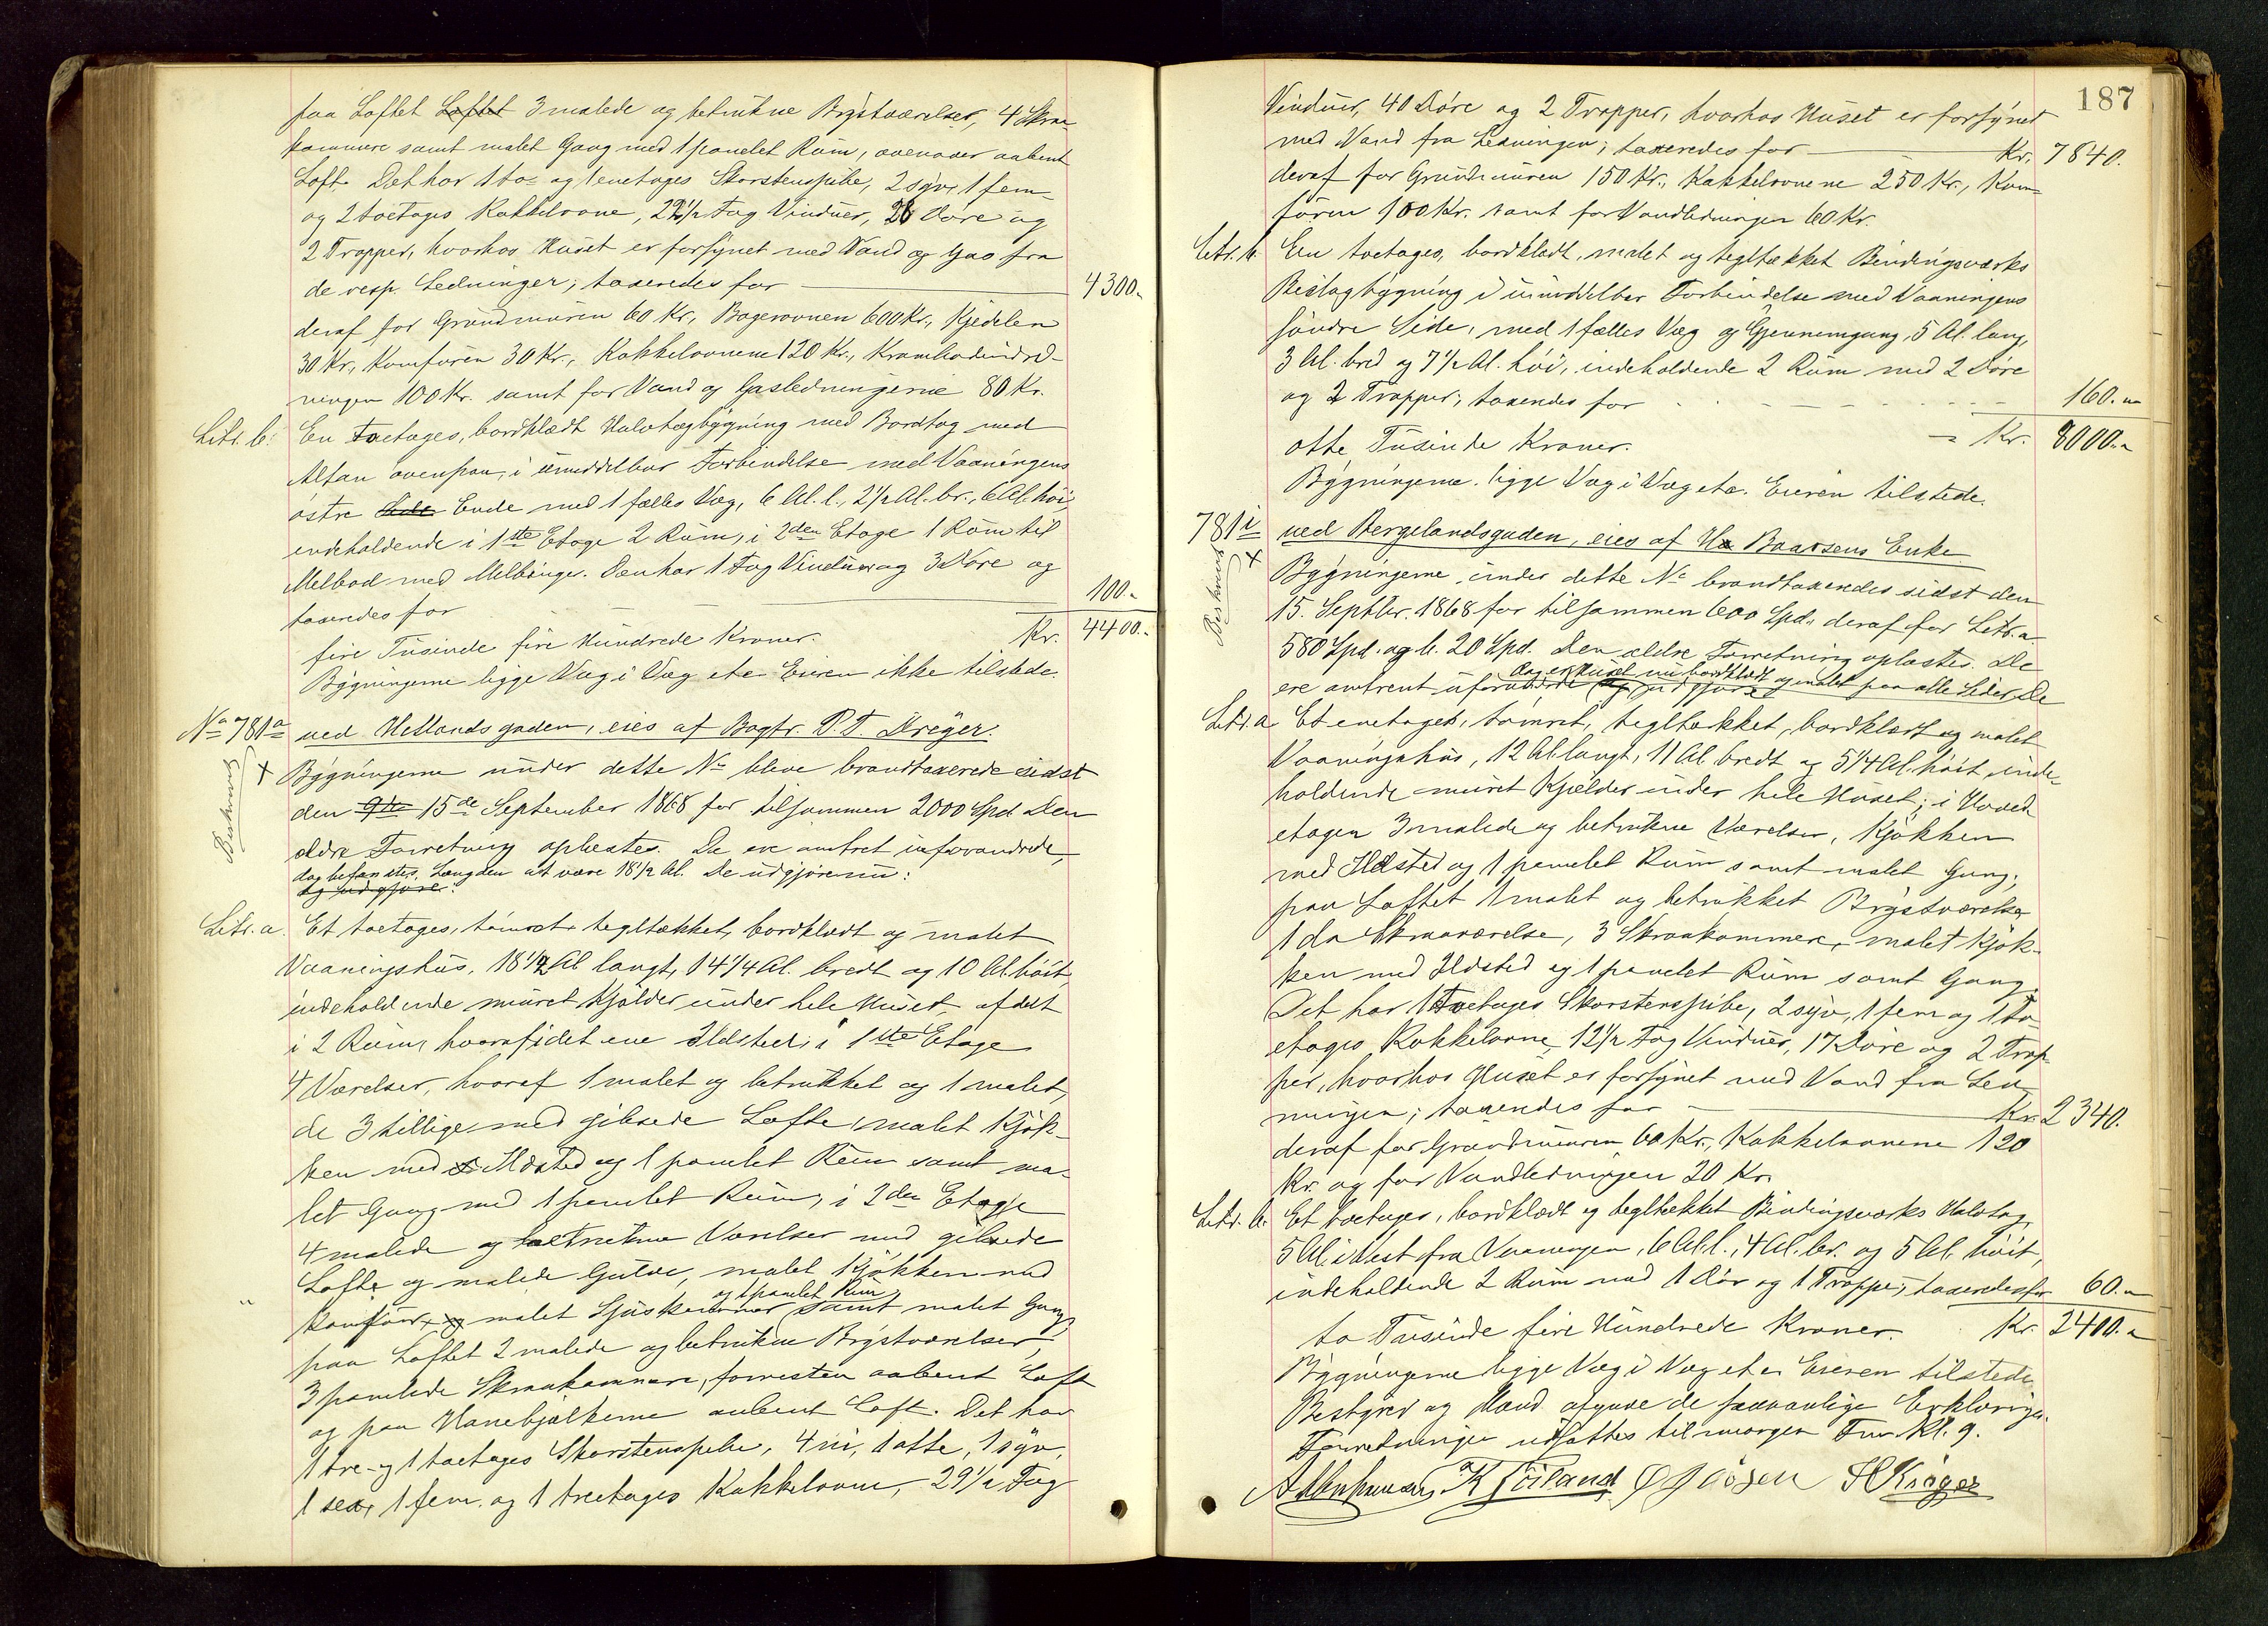 paa Loftet Loftet 3 malede og betrukne Brystværelser, 4 Skraa-
kammere samt malet Gang med 1 panelet Rum, ovenover aabent
Loft. Det har 1 to- og 1 enetages Skorstenspibe, 2 syv, 1 fem
og 2 toetages Kakkelovne, 22½ Fag Vinduer, 26 Døre og
2 Trapper, hvorhos Huset er forsynet med Vand og Gas fra
de resp. Ledninger; taxeredes for 4300.-
deraf for Grundmuren 60 Kr., Bagerovnen 600 Kr., Kjedelen
30 Kr., Komfuren 30 Kr., Kakkelovnene 120 Kr., Krambodindred-
ningen 100 Kr. samt for Vand og Gasledningerne 80 Kr.
Litr. b. En toetages, bordklædt Halvtagbygning med Bordtag med
Altan ovenpaa, i umiddelbar Forbindelse med Vaaningens
østre Side Ende med 1 fælles Væg, 6 Al. l., 2½ Al. br., 6 Al. høi,
indeholdende i 1ste Etage 2 Rum, i 2den Etage 1 Rum til
Melbod med Melbinge. Den har 1 Fag Vinduer og 3 Døre og
taxeredes for 100.-
fire Tusinde fire Hundrede Kroner. Kr. 4400.-
Bygningerne ligge Væg i Væg etc. Eieren ikke tilstede.
No 781a ved Hetlandsgaden, eies af Bagtr. P. T. Kreyer.
Beskrives
+ Bygningerne under dette No bleve brandtaxerede sidst
den 9de 15de September 1868 for tilsammen 2000 Spd. Den
ældre Forretning oplæstes. De ere omtret uforandrede,
dog befandtes Længden at være 18½ Al. De udgjøre nu:
og udgjøre:
Litr. a. Et toetages, tømret, tegltækket, bordklædt og malet
Vaaningshus, 18½ Al langt, 14¼ Al. bredt og 10 Al. høit,
indeholdende muret Kjælder under hele Huset, afdelt
i 2 Rum, hvoraf i det ene Ildsted; i 1ste Etage
4 Værelser, hvoraf 1 malet og betrukket og 1 malet,
de 3 tillige med gibsede Lofte, malet Kjøk-
ken med Ildsted og 1 panelet Rum samt ma-
let Gang med 1 panelet Rum, i 2den Etage
4 malede og betrukne Værelser med gibsede
Lofte og malede Gulve, malet Kjøkken med
og 1 panelet Rum
Komfur, og malet Spiskammer samt malet Gang,
paa Loftet 2 malede og betrukne Brystværelser,
3 panelede Skraakammere, forresten aabent Loft
og paa Hanebjælkerne aabent Loft. Det har
1 tre- og 1 toetages Skorstenspibe, 4 ni, 1 otte, 1 syv,
1 sex, 1 fem og 1 treetages Kakkelovne, 29½ Fag
187
Vinduer, 40 Døre og 2 Trapper, hvorhos Huset er forsynet
med Vand fra Ledningen; taxeredes for Kr. 7840.
deraf for Grundmuren 150 Kr., Kakkelovnene 250 Kr., Kom-
furen 100 Kr. samt for Vandledningen 60 Kr.
Litr. b. En toetages, bordklædt, malet og tegltækket Bindingsværks
Bislagbygning i umiddelbar Forbindelse med Vaaningens
søndre Side, med 1 fælles Væg og Gjennemgang, 5 Al. lang,
3 Al. bred og 7½ Al. høi, indeholdende 2 Rum med 2 Døre
og 2 Trapper; taxeredes for 160.-
otte Tusinde Kroner. Kr. 8000.-
Bygningerne ligge Væg i Væg etc. Eieren tilstede.
781i ved Bergelandsgaden, eies af Baarsens Enke
Beskrives
+ Bygningerne under dette No brandtaxeredes sidst den
15. Septbr. 1868 for tilsammen 600 Spd., deraf for Litr. a
580 Spd. og b. 20 Spd. Den ældre Forretning oplæstes. De
dog er Huset nu bordklædt og malet paa alle Sider. De
ere omtrent uforandrede og udgjøre
Litr. a Et enetages, tømret, tegltækket, bordklædt og malet
Vaaningshus, 12 Al. langt, 11 Al. bredt og 5¼ Al. høit, inde-
holdende muret Kjælder under hele Huset; i Hoved-
etagen 3 malede og betrukne Værelser, Kjøkken
med Ildsted og 1 panelet Rum samt malet Gang;
paa Loftet 1 malet og betrukket Brystværelse
1 do Skraaværelse, 3 Skraakammere, malet Kjøk-
ken med Ildsted og 1 panelet Rum samt Gang.
Det har 1 toetages Skorstenspibe, 2 syv, 1 fem og 1 to-
etages Kakkelovne, 12½ Fag Vinduer, 17 Døre og 2 Trap-
per, hvorhos Huset er forsynet med Vand fra Led-
ningen; taxeredes for Kr. 2340.
deraf for Grundmuren 60 Kr., Kakkelovnene 120
Kr. og for Vandledningen 20 Kr.
Litr. b. Et toetages, bordklædt og tegltækket Bindingsværks Halvtag,
5 Al. i Vest fra Vaaningen, 6 Al. l., 4 Al. br. og 5 Al. høit,
indeholdende 2 Rum med 1 Dør og 1 Trappe; taxeredes for 60.-
to Tusinde fire Hundrede Kroner. Kr. 2400.-
Bygningerne ligge Væg i Væg etc. Eieren tilstede
Bestyrer og Mænd afgave de sædvanlige Erklæringer.
Forretningen udsattes til imorgen Fm. Kl. 9.
K Joiland H Krøger